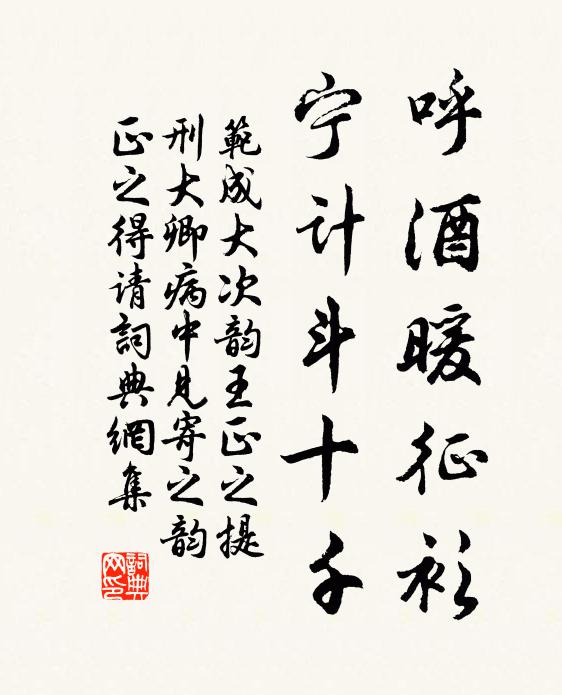 呼酒暖征衫
宁计斗十千
範成大次韵王正之提
刑大卿病中见寄之韵
正之得请詞典網集
詞典
网印